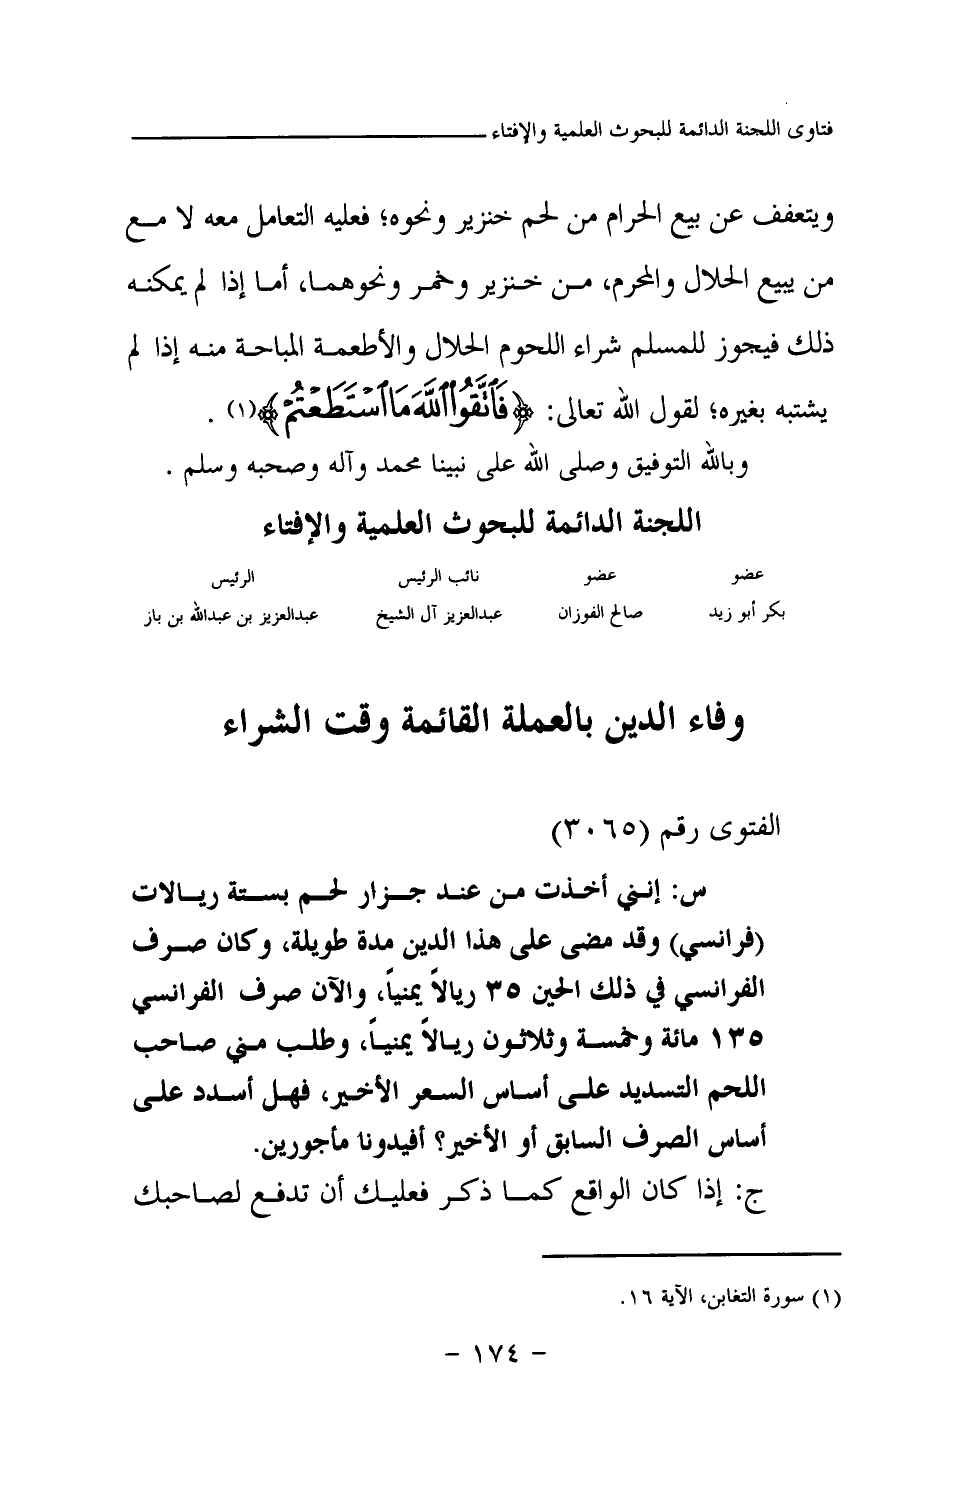 فتاوى اللجنة الدائمة للبحوث العلمية والإفتاء
ويتعفف عن بيع الحرام من لحم خنزير ونحوه؛ فعليه التعامل معه لا مـع
من يبيع الحلال والمحرم، مـن خـنزير وخمـر ونحوهمـا، أمـا إذا لم يمكنـه
ذلك فيجوز للمسلم شراء اللحوم الحلال والأطعمـة المباحـة منـه إذا لم
يشتبه بغيره؛ لقول الله تعالى: ﴿فَٱتَّقُوا۟ ٱللَّهَ مَا ٱسْتَطَعْتُمْ﴾(١) .
وبالله التوفيق وصلى الله على نبينا محمد وآله وصحبه وسلم .
اللجنة الدائمة للبحوث العلمية والإفتاء
عضو عضو نائب الرئيس الرئيس
بكر أبو زيد صالح الفوزان عبدالعزيز آل الشيخ عبدالعزيز بن عبدالله بن باز
وفاء الدين بالعملة القائمة وقت الشراء
الفتوى رقم (٣٠٦٥)
س: إنـني أخـذت مـن عنـد جـزار لحـم بسـتة ريـالات
(فرانسي) وقد مضى على هذا الدين مدة طويلة، وكان صـرف
الفرانسي في ذلك الحين ٣٥ ريالاً يمنياً، والآن صرف الفرانسي
١٣٥ مائة وخمسـة وثلاثـون ريـالاً يمنيـاً، وطلـب مـني صـاحب
اللحم التسديد علـى أساس السعر الأخـير، فهـل أسـدد علـى
أساس الصرف السابق أو الأخير؟ أفيدونا مأجورين.
ج: إذا كان الواقع كمـا ذكـر فعليـك أن تدفـع لصـاحبك
(١) سورة التغابن، الآية ١٦.
- ١٧٤ -